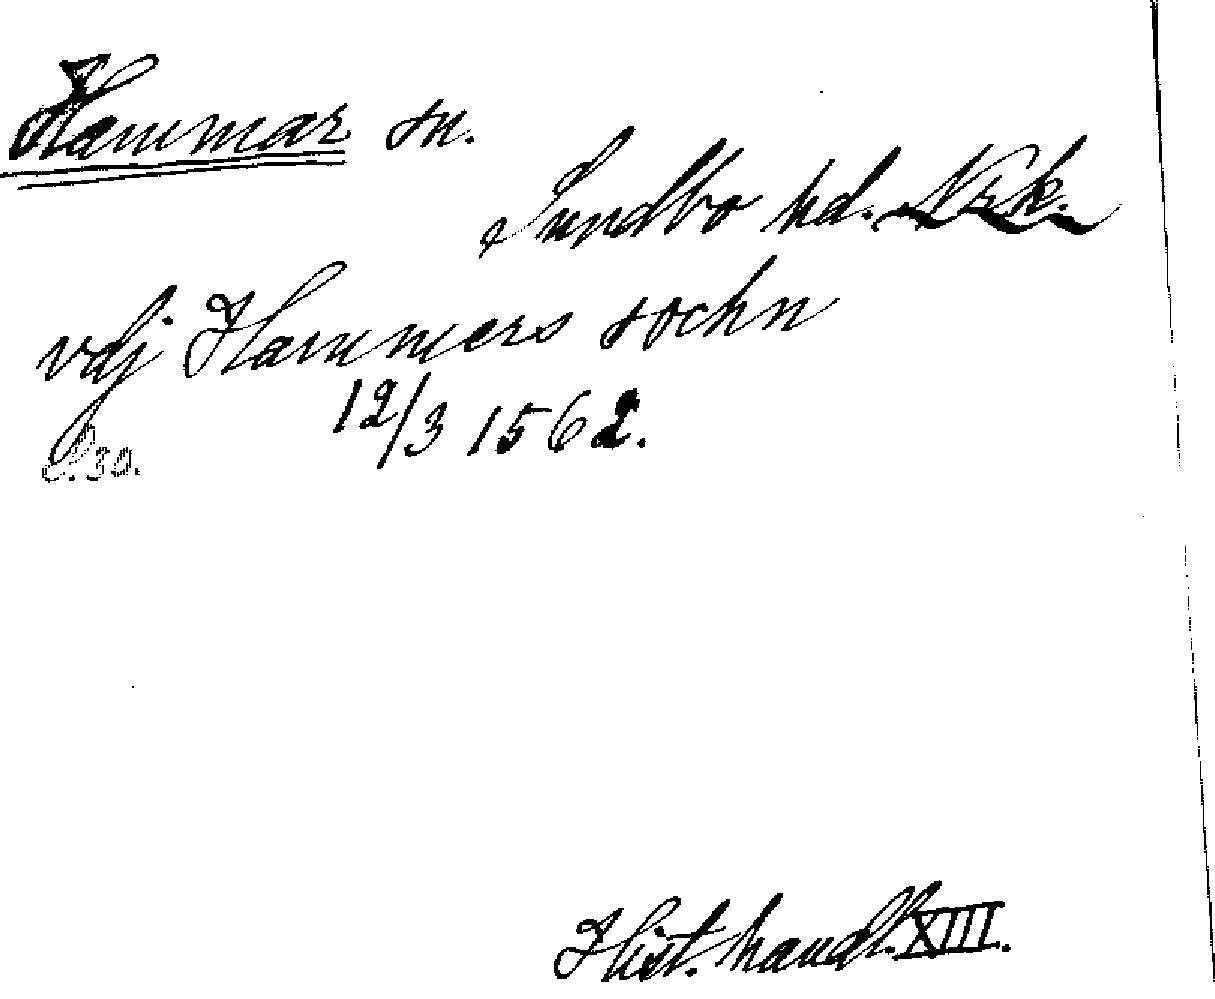 Hammar sn.
Sundbo hd. Nrk.
vdj Hammers sochn
12/3 1562.
s. 30.
Hist. handl. XIII.